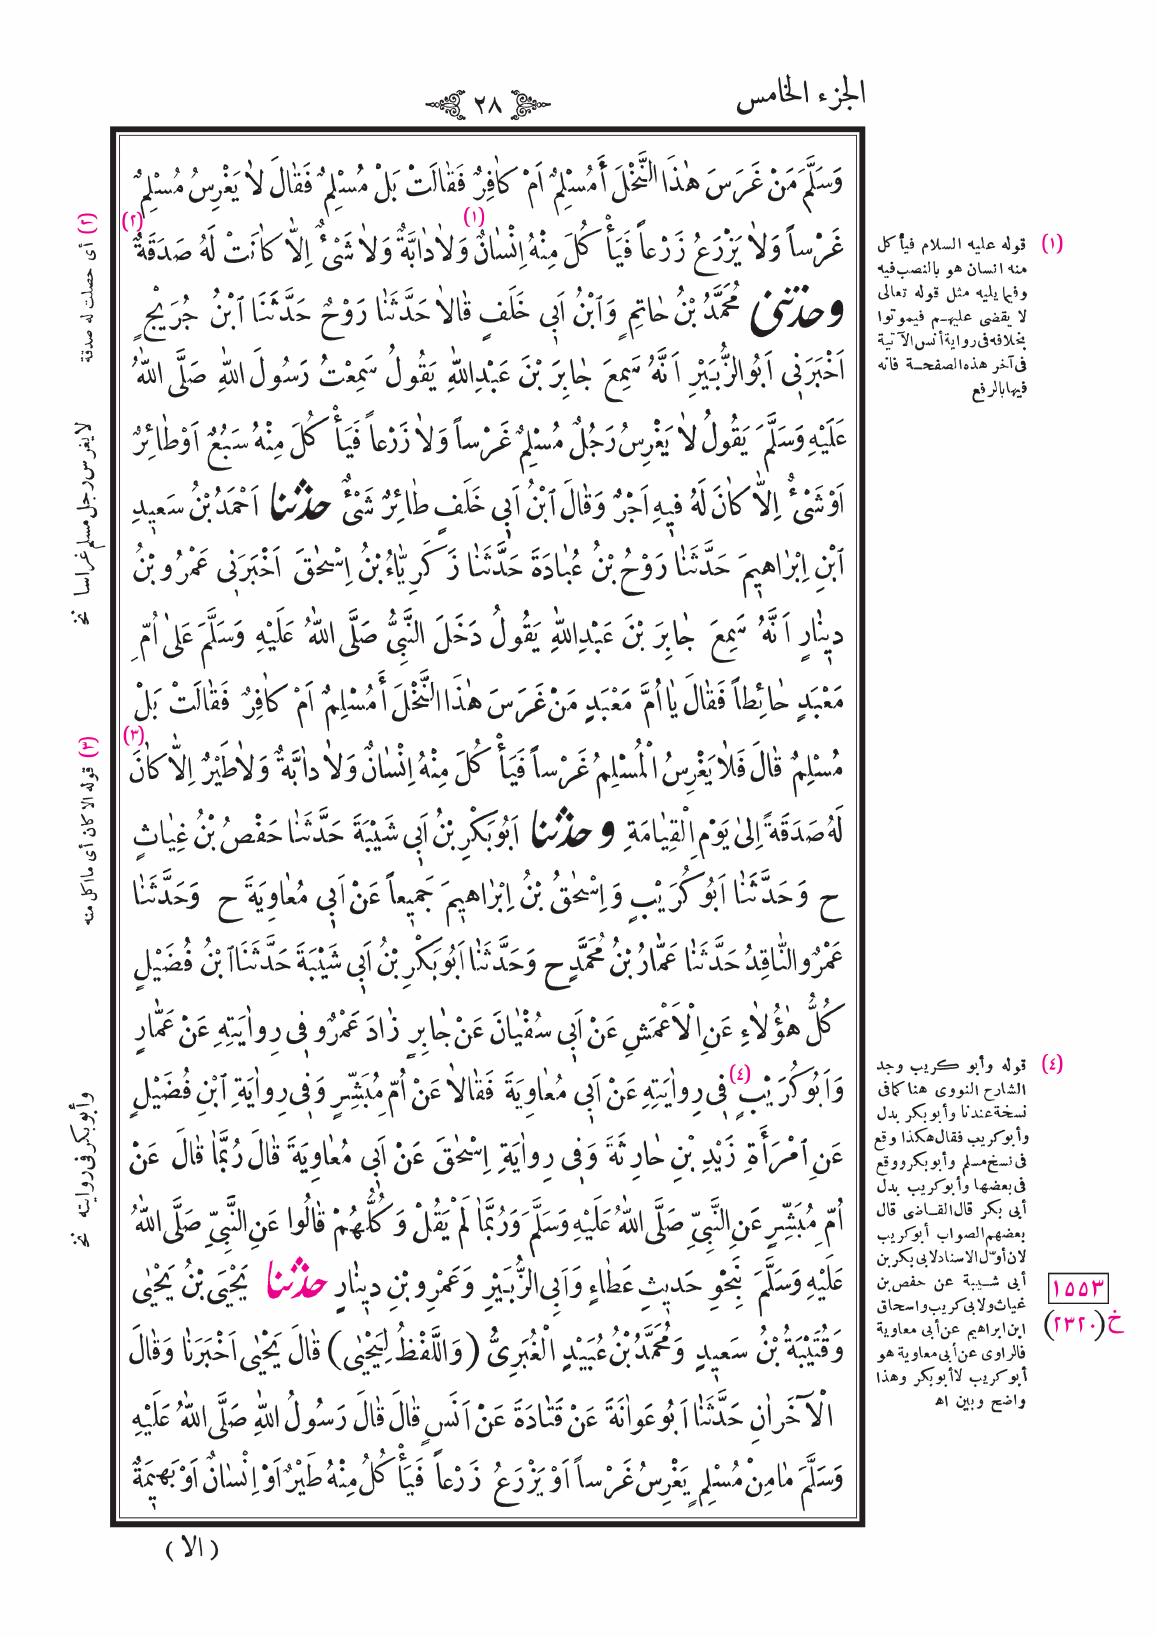 الجزء الخامس
٢٨
وَسَلَّمَ مَنْ غَرَسَ هٰذَا النَّخْلَ أَمُسْلِمٌ اَمْ كَافِرٌ فَقَالَتْ بَلْ مُسْلِمٌ فَقَالَ لَا يَغْرِسُ مُسْلِمٌ
غَرْساً وَلَا يَزْرَعُ زَرْعاً فَيَأْكُلَ مِنْهُ اِنْسَانٌ (١) وَلَا دَابَّةٌ وَلَا شَىْءٌ اِلَّا كَانَتْ لَهُ صَدَقَةٌ (٢)
وحدثنى مُحَمَّدُ بْنُ حَاتِمٍ وَٱبْنُ اَبِي خَلَفٍ قَالَا حَدَّثَنَا رَوْحٌ حَدَّثَنَا ٱبْنُ جُرَيْجٍ
اَخْبَرَنِي اَبُو الزُّبَيْرِ اَنَّهُ سَمِعَ جَابِرَ بْنَ عَبْدِاللهِ يَقُولُ سَمِعْتُ رَسُولَ اللهِ صَلَّى اللهُ
عَلَيْهِ وَسَلَّمَ يَقُولُ لَا يَغْرِسُ رَجُلٌ مُسْلِمٌ غَرْساً وَلَا زَرْعاً فَيَأْكُلَ مِنْهُ سَبُعٌ اَوْطَائِرٌ
اَوْ شَىْءٌ اِلَّا كَانَ لَهُ فِيهِ اَجْرٌ وَقَالَ ٱبْنُ اَبِي خَلَفٍ طَائِرٌ شَىْءٌ حدثنا اَحْمَدُ بْنُ سَعِيدِ
ٱبْنِ اِبْرَاهِيمَ حَدَّثَنَا رَوْحُ بْنُ عُبَادَةَ حَدَّثَنَا زَكَرِيَّاءُ بْنُ اِسْحٰقَ اَخْبَرَنِي عَمْرُو بْنُ
دِينَارٍ اَنَّهُ سَمِعَ جَابِرَ بْنَ عَبْدِاللهِ يَقُولُ دَخَلَ النَّبِيُّ صَلَّى اللهُ عَلَيْهِ وَسَلَّمَ عَلٰى اُمِّ
مَعْبَدٍ حَائِطاً فَقَالَ يَا اُمَّ مَعْبَدٍ مَنْ غَرَسَ هٰذَا النَّخْلَ أَمُسْلِمٌ اَمْ كَافِرٌ فَقَالَتْ بَلْ
مُسْلِمٌ قَالَ فَلَا يَغْرِسُ الْمُسْلِمُ غَرْساً فَيَأْكُلَ مِنْهُ اِنْسَانٌ وَلَا دَابَّةٌ وَلَا طَيْرٌ اِلَّا كَانَ (٣)
لَهُ صَدَقَةً اِلىٰ يَوْمِ الْقِيَامَةِ وحدثنا اَبُو بَكْرِ بْنُ اَبِي شَيْبَةَ حَدَّثَنَا حَفْصُ بْنُ غِيَاثٍ
ح وَحَدَّثَنَا اَبُو كُرَيْبٍ وَاِسْحٰقُ بْنُ اِبْرَاهِيمَ جَمِيعاً عَنْ اَبِي مُعَاوِيَةَ ح وَحَدَّثَنَا
عَمْرٌو النَّاقِدُ حَدَّثَنَا عَمَّارُ بْنُ مُحَمَّدٍ ح وَحَدَّثَنَا اَبُو بَكْرِ بْنُ اَبِي شَيْبَةَ حَدَّثَنَا ٱبْنُ فُضَيْلٍ
كُلُّ هٰؤُلَاءِ عَنِ الْاَعْمَشِ عَنْ اَبِي سُفْيَانَ عَنْ جَابِرٍ زَادَ عَمْرٌو فِي رِوَايَتِهِ عَنْ عَمَّارٍ
وَاَبُو كُرَيْبٍ (٤) فِي رِوَايَتِهِ عَنْ اَبِي مُعَاوِيَةَ فَقَالَا عَنْ اُمِّ مُبَشِّرٍ وَفِي رِوَايَةِ ٱبْنِ فُضَيْلٍ
عَنِ ٱمْرَأَةِ زَيْدِ بْنِ حَارِثَةَ وَفِي رِوَايَةِ اِسْحٰقَ عَنْ اَبِي مُعَاوِيَةَ قَالَ رُبَّمَا قَالَ عَنْ
اُمِّ مُبَشِّرٍ عَنِ النَّبِيِّ صَلَّى اللهُ عَلَيْهِ وَسَلَّمَ وَرُبَّمَا لَمْ يَقُلْ وَكُلُّهُمْ قَالُوا عَنِ النَّبِيِّ صَلَّى اللهُ
عَلَيْهِ وَسَلَّمَ بِنَحْوِ حَدِيثِ عَطَاءٍ وَاَبِي الزُّبَيْرِ وَعَمْرِو بْنِ دِينَارٍ حدثنا يَحْيَى بْنُ يَحْيٰى
وَقُتَيْبَةُ بْنُ سَعِيدٍ وَمُحَمَّدُ بْنُ عُبَيْدٍ الْغُبَرِيُّ (وَاللَّفْظُ لِيَحْيٰى) قَالَ يَحْيٰى اَخْبَرَنَا وَقَالَ
الْآخَرَانِ حَدَّثَنَا اَبُو عَوَانَةَ عَنْ قَتَادَةَ عَنْ اَنَسٍ قَالَ قَالَ رَسُولُ اللهِ صَلَّى اللهُ عَلَيْهِ
وَسَلَّمَ مَامِنْ مُسْلِمٍ يَغْرِسُ غَرْساً اَوْ يَزْرَعُ زَرْعاً فَيَأْكُلُ مِنْهُ طَيْرٌ اَوْ اِنْسَانٌ اَوْ بَهِيمَةٌ
( الا )
(١) قوله عليه السلام فيأكل
منه انسان هو بالنصب فيه
وفيما يليه مثل قوله تعالى
لا يقضى عليهم فيموتوا
بخلافه فى رواية أنس الآتية
فى آخر هذه الصفحة فانه
فيها بالرفع
(٤) قوله وأبو كريب وجد
الشارح النووى هنا كما فى
نسخة عندنا وأبو بكر بدل
وأبو كريب فقال هكذا وقع
فى نسخ مسلم وأبو بكر ووقع
فى بعضها وأبو كريب بدل
أبى بكر قال القاضى قال
بعضهم الصواب أبو كريب
لان أول الاسناد لابى بكر بن
أبى شيبة عن حفص بن
غياث ولابى كريب واسحاق
ابن ابراهيم عن أبى معاوية
فالراوى عن أبى معاوية هو
أبو كريب لا أبو بكر وهذا
واضح وبين اه
١٥٥٣
خ (٢٣٢٠)
(٢) أى حصلت له صدقة
لا يغرس رجل مسلم غراسا نخ
(٣) قوله الا كان أى ما اكل منه
وأبو بكر فى روايته نخ